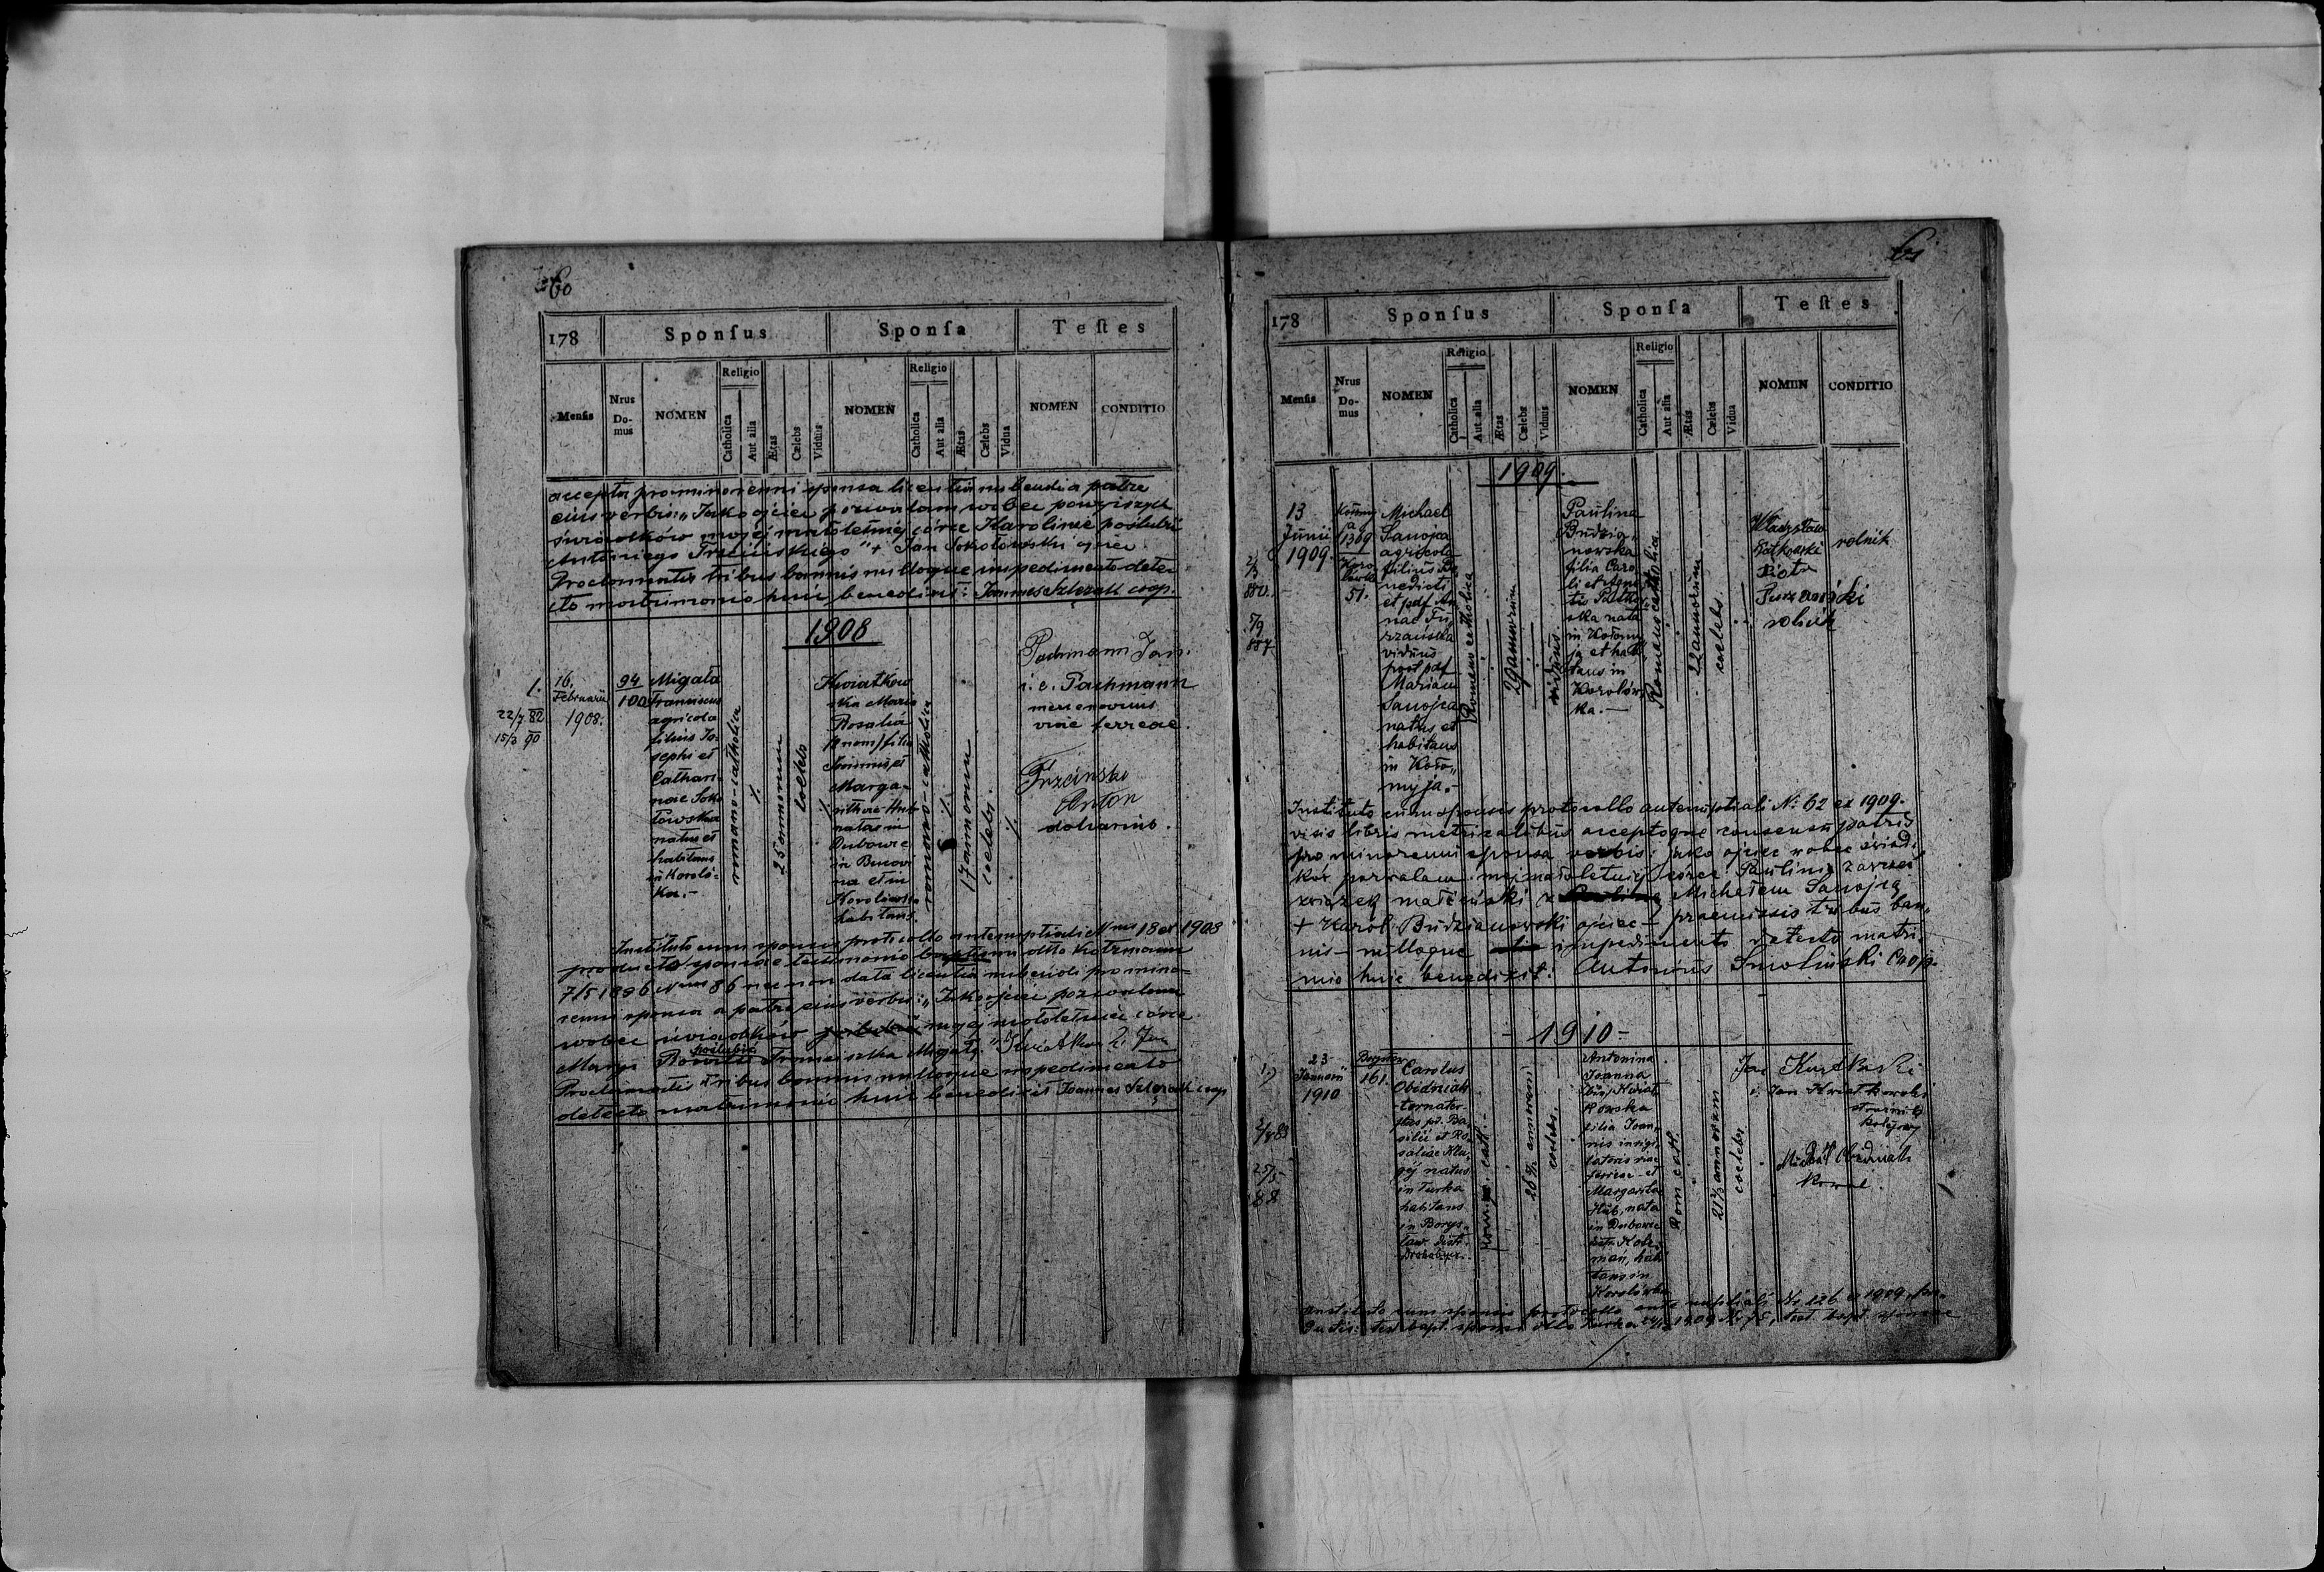 60
178 Sponſus Sponſa Teſtes
Menſis Nrus Do- mus NOMEN Religio Catholica Aut alia Ætas Cælebs Viduus NOMEN Religio Catholica Aut alia Ætas Cælebs Vidua NOMEN CONDITIO
accepta pro minorenni sponsa licentia nubendi a patre
eius verbis: "Jako ojciec pozwalam wobec powyższych
świadków mojej małoletniej córce Karolinie poślubić
Antoniego Trzcińskiego" + Jan Sokołowski ojciec.
Proclamatis tribus bannis nulloque impedimento detec-
to matrimonio huic benedixit: Joannes Szlęzak coop.
1908
1.
22/7 82
15/3 90
16.
Februarii
1908.
94
100
Migała
Franciscus
agricola
filius Jo-
sephi et
Cathari-
nae Soko
łowska
natus et
habitans
in Koroló-
ka.-
romano-catholica
25 annorum
coelebs
Kwiatkow
ska Maria
Rosalia
(2 nom) filia
Joannis et
Marga-
rithae Hub
natae in
Dubowie
in Bucovi
na et in
Korolówka
habitans.
romano-catholica
17 annorum
coelebs.
Pachmann Jan.
i. e. Pachmann
mercenarius
viae ferreae.
Trzcinski
Anton
doliarius.
Instituto cum sponsis protocollo antenuptiali Nrus 18 ex 1908
producto sponsae testimonio baptismi dtto Kotzmann
7/5 1896 Nrus 86 nec non data licentia nubendi pro mino-
renni sponsa a patre eius verbis: "Jako ojciec pozwalam
wobec świadków mojej małoletniej córce
Maryi Rozalii poślubić Franciszka Migałę." Kwiatkow Jan
Proclamatis tribus bannis nulloque impedimento
detecto matrimonio huic benedixit Joannes Szlęzak coop
61
178 Sponſus Sponſa Teſtes
Menſis Nrus Do- mus NOMEN Religio Catholica Aut alia Ætas Cælebs Viduus NOMEN Religio Catholica Aut alia Ætas Cælebs Vidua NOMEN CONDITIO
1909.
13
Junii
1909.
2/3
880.
5/9
887
1309
51.
Michael
Sanojca
agricola
filius Be
nedicti
et pdf. An
nae Fu
rzańska
viduus
post pdf
Mariam
Sanojca
natus et
habitans
in Koło-
myja.-
Romano catholica
29 annorum
viduus
Paulina
Budzia
nowska
filia Caro
li et Agne
tis Pułko
ska nata
in Kołomy
ja et habi
tans in
Korolów-
ka.-
Romano catholica
22 annorum
coelebs.
Władysław
rolnik
Piotr
rolnik
Instituto cum sponsis protocollo antenuptiali N: 62 ex 1909.
visis libris metricalibus acceptoque consensu patris
pro minorenni sponsa verbis: jako ojciec wobec świad-
ków pozwalam mej małoletniej córce Paulinie zawrzeć
związek małżeński z Michałem Sanojcą
+ Karol Budzianowski ojciec - praemissis tribus ban-
nis - nulloque impedimento detecto matri-
mio huic benedixit: Antonius Smoliński Coop.
- 1910 -
1.)
2/8 83
25/5-
88
23
Januarii
1910
Borysław
161.
Carolus
Obedniak
tornator
filius pd. Ba
silii et Ro
saliae Klu
gij natus
in Turka
habitans
in Borys-
law distr.
Drohobycz.
Rom. cath.-
26 5/12 annorum
coelebs.
Antonina
Joanna
(bin) Kwiat
kowska
filia Joan
nis invigi
latoris viae
ferreae - et
Margarita
Hub, nata
in Dubowie
distr. Kotz-
man, habi
tans in
Korolówka
Rom cath.
21 annorum
coelebs
Jan Kwiatkoski
i. Jan Kwiatkowski
strażnik
kolejowy
Michał Obedniak
Kowal.
Instituto cum sponsis protocollo ante nuptiali Nr. 126 ex 1909, pro-
ductis: test bapt. sponsi dtto Turka 1909 Nr 75, test. bapt. sponsae